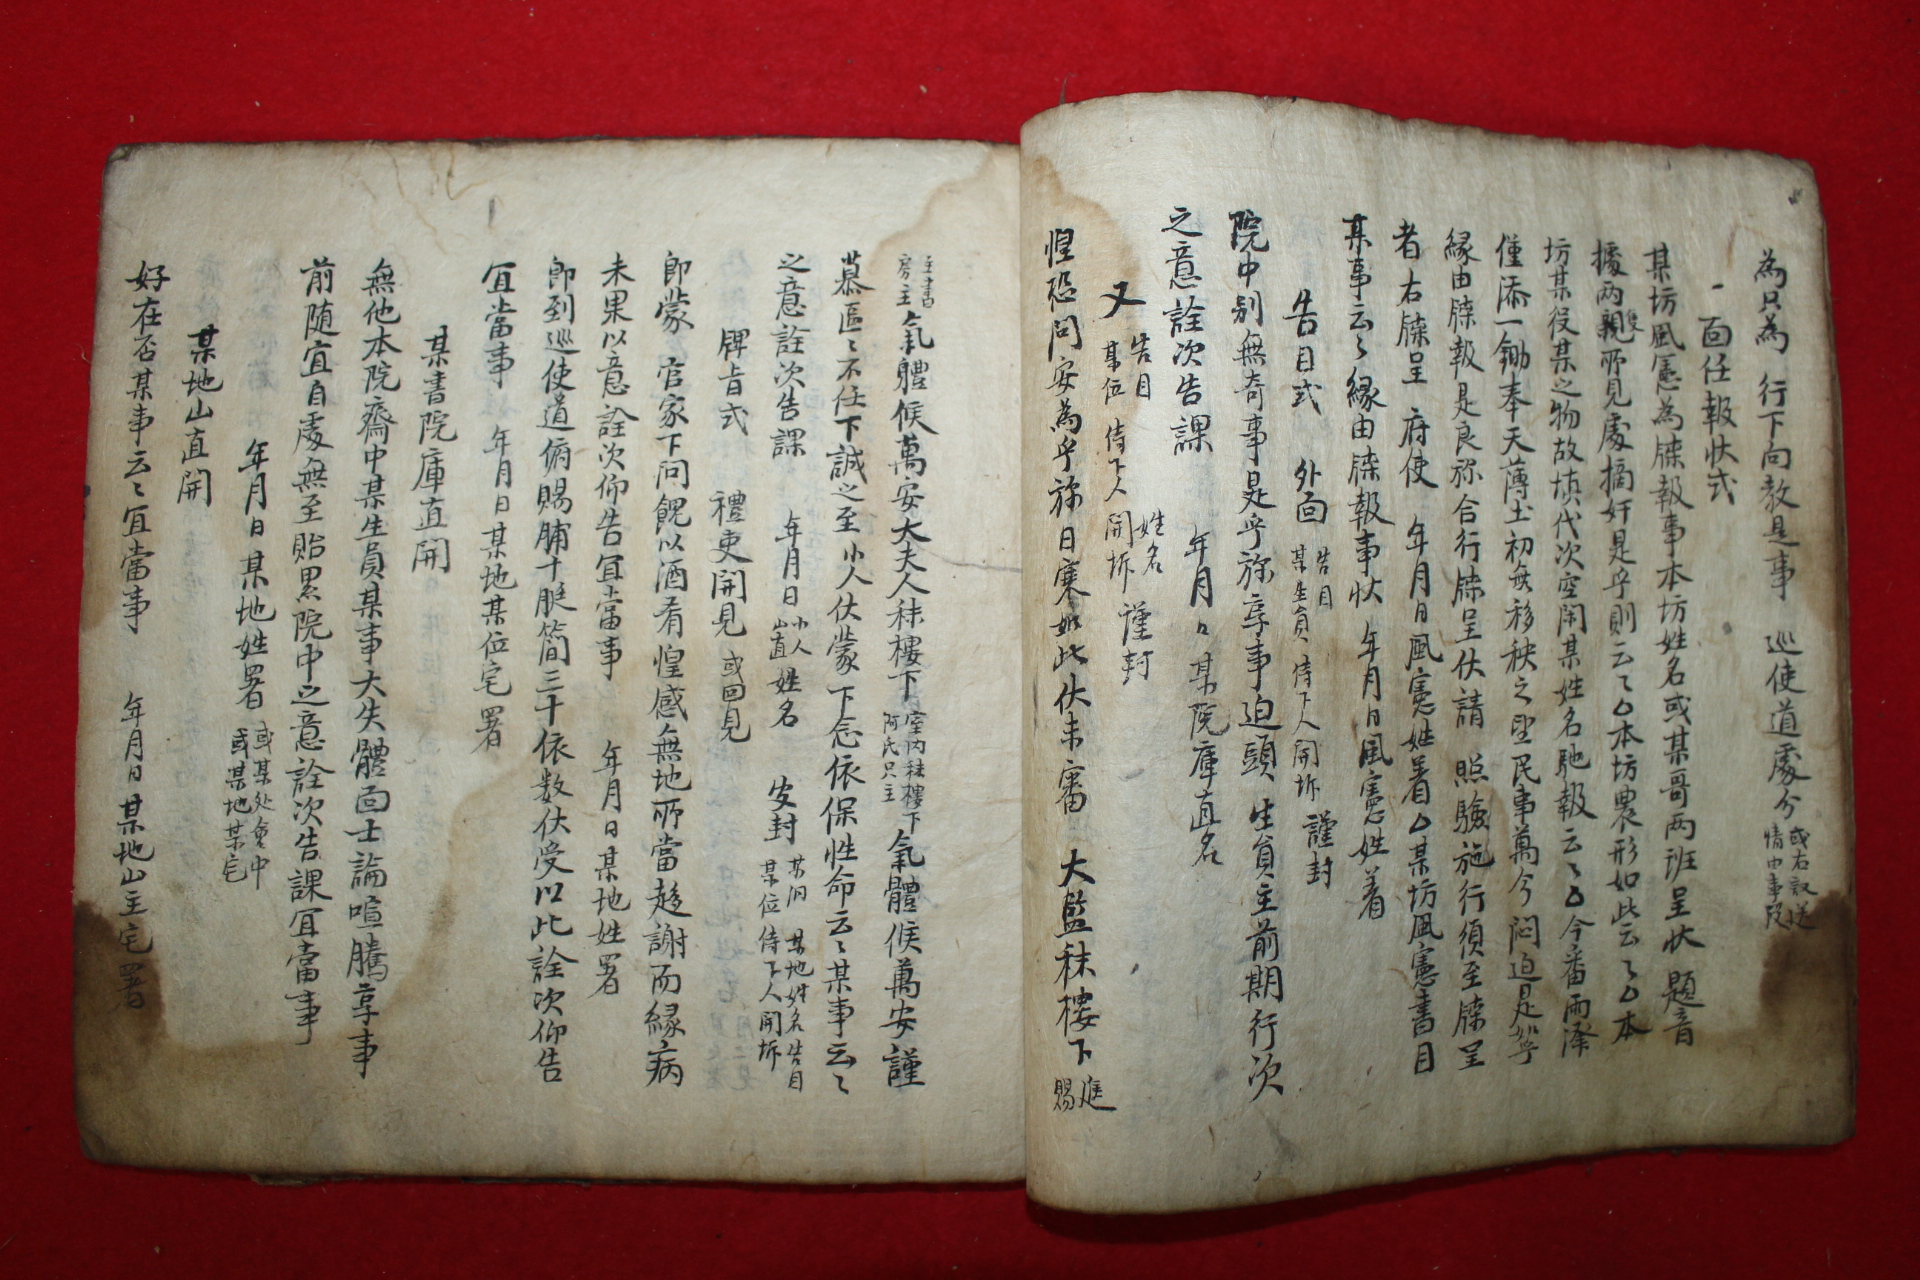 為只為 行下向教是事 巡使道處分 或右議送 情由事段
一面任報狀式
某坊風憲為牒報事本坊姓名或某哥两班呈狀 題音
據两隻親所見處摘奸是乎則云〻△本坊農形如此云〻△本
坊某役某之物故填代次空閑某姓名馳報云〻△今番雨澤
僅添一鋤奉天薄土初無移秧之望民事萬分悶迫是如乎
緣由牒報是良旀合行牒呈伏請 照驗施行須至牒呈
者右牒呈 府使 年月日風憲姓着△某坊風憲書目
某事云〻緣由牒報事狀 年月日風憲姓着
告目式 外面 告目 某生員 侍下人開坼 謹封
院中別無奇事是乎旀享事迫頭 生員主前期行次
之意詮次告課 年月日某院庫直名
又 告目 某位 侍下人 開坼 姓名 謹封
惶恐問安為乎旀日寒如此伏未審 大監秣樓下
主書 房主 氣體候萬安大夫人秣樓下 室内秣樓下 阿氏只主 氣體候萬安謹
慕區〻不任下誠之至小人伏蒙 下念依保性命云〻某事云〻
之意詮次告課 年月日 小人 山直 姓名 皮封 某洞 某位侍下人開坼 某地姓名告目
牌旨式 禮吏開見 或回見
即蒙 官家下问餽以酒肴惶感無地所當趍謝而緣病
未果以意詮次仰告宜當事 年月日某地姓署
即到巡使道俯賜脯十脡簡三十依数伏受以此詮次仰告
宜當事 年月日某地某位宅署
某書院庫直開
無他本院齋中某生員某事大失體面士論喧騰享事
前随宜自處無至貽累院中之意詮次告課宜當事
年月日某地姓署 或某处會中 或某地某宅
某地山直開
好在否某事云〻宜當事 年月日某地山主宅署